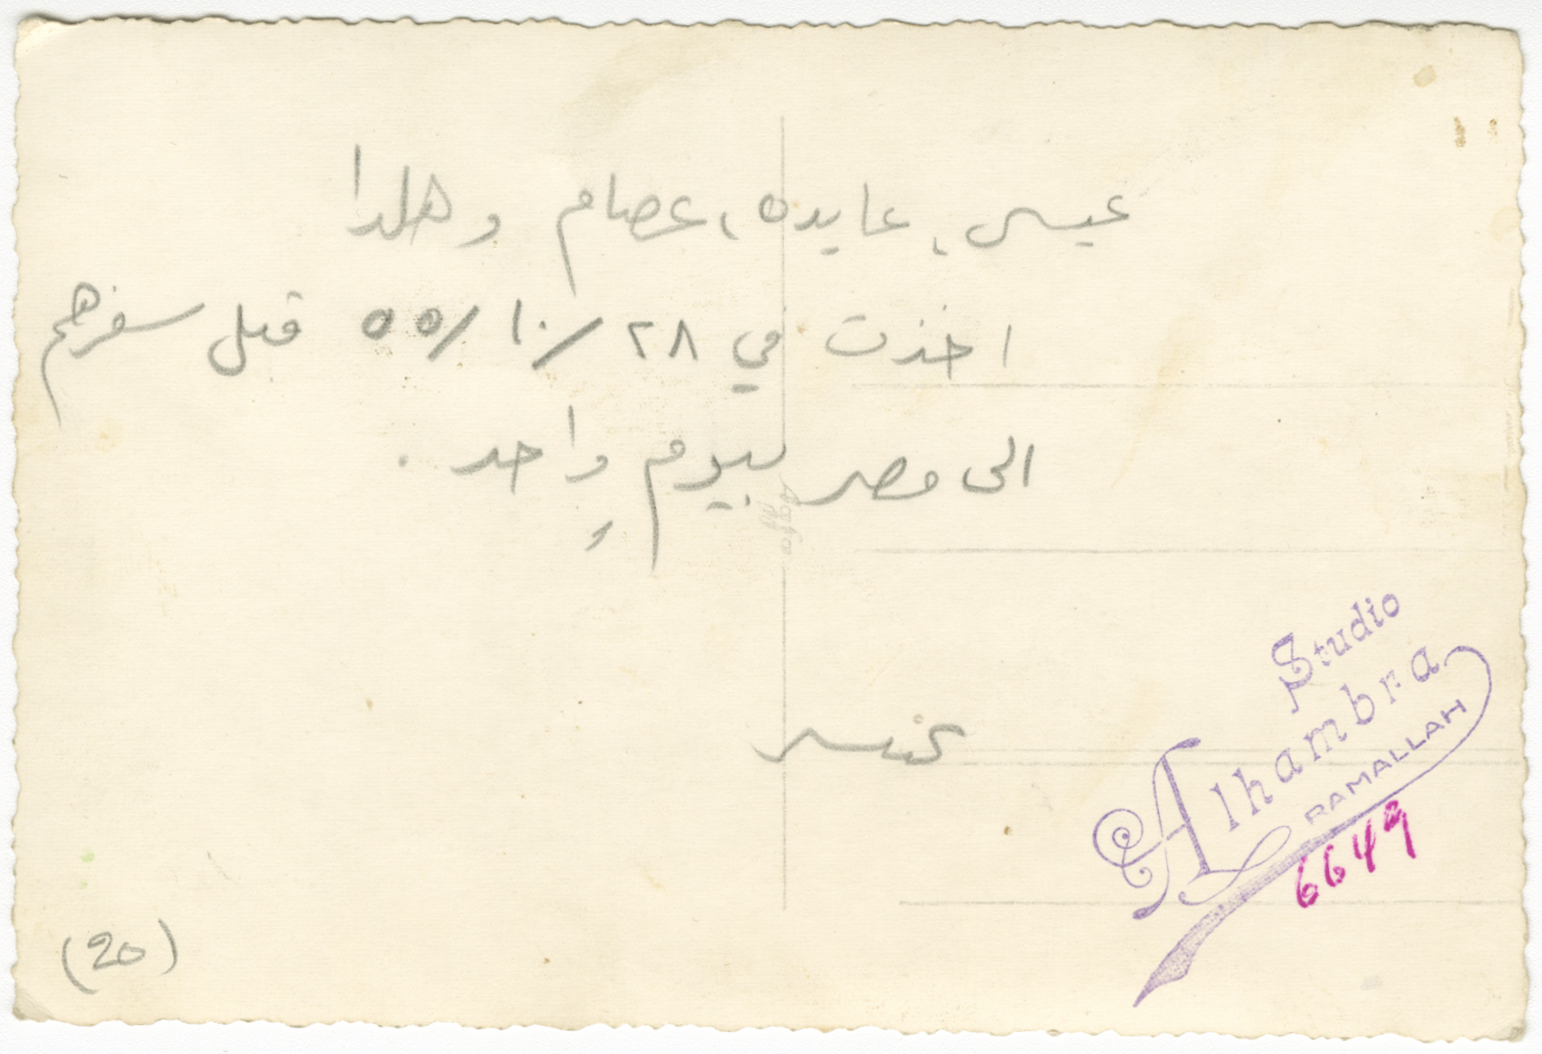 عيسى، عايده، عصام و هلدا
اخذت في ٢٨/١٠/٥٥ قبل سفرهم
الى مصر بيوم واحد.
Studio
Alhambra
RAMALLAH
6649
(20)